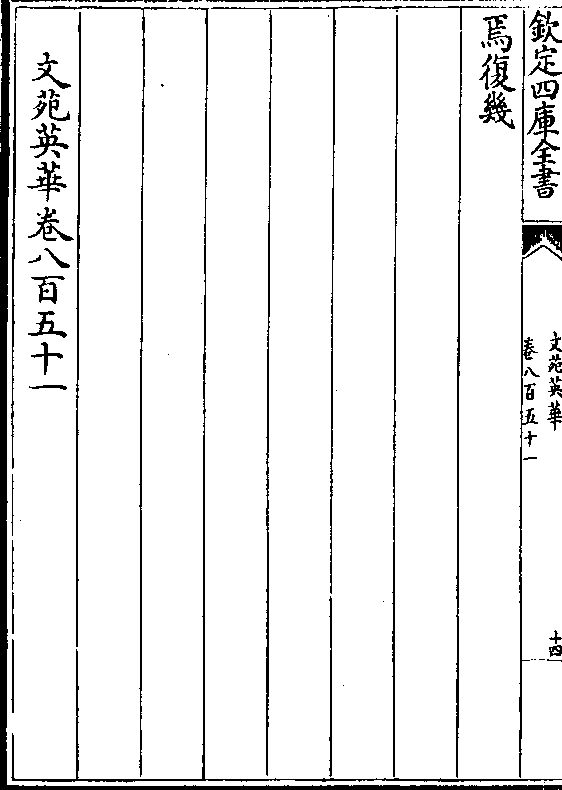 欽定四庫全書
文苑英華
卷八百五十一
十四
焉復幾
文苑英華卷八百五十一